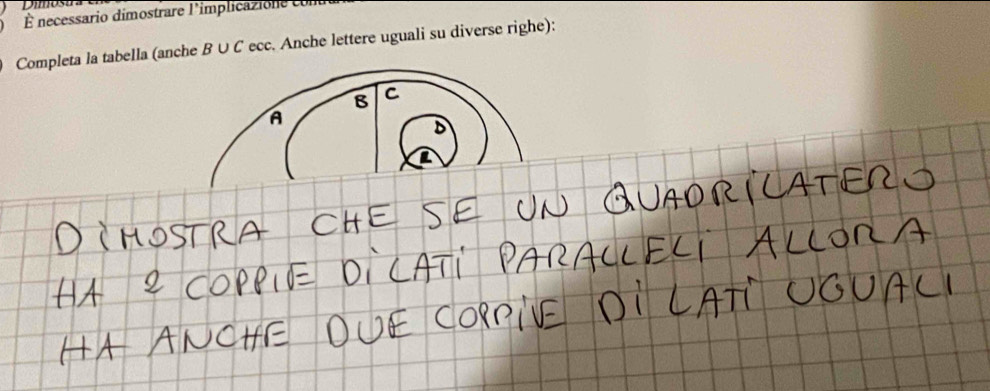 È necessario dimostrare l'implicazione
Completa la tabella (anche B ∪ C ecc. Anche lettere uguali su diverse righe):
A B C
D
E
DIMOSTRA CHE SE UN QUADRILATERO
HA 2 COPPIE DI LATI PARALLELI ALLORA
HA ANCHE DUE COPPIE DI LATI UGUALI